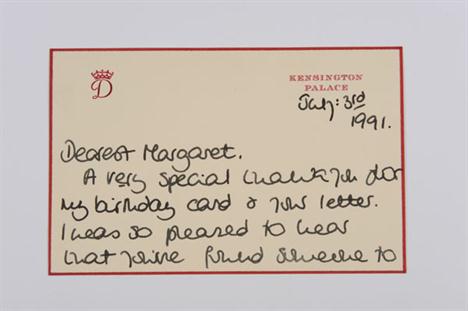 D
KENSINGTON
PALACE
July: 3rd
1991.
Dearest Margaret.
A very special thank you for
my birthday card & your letter.
I was so pleased to hear
that you've found someone to